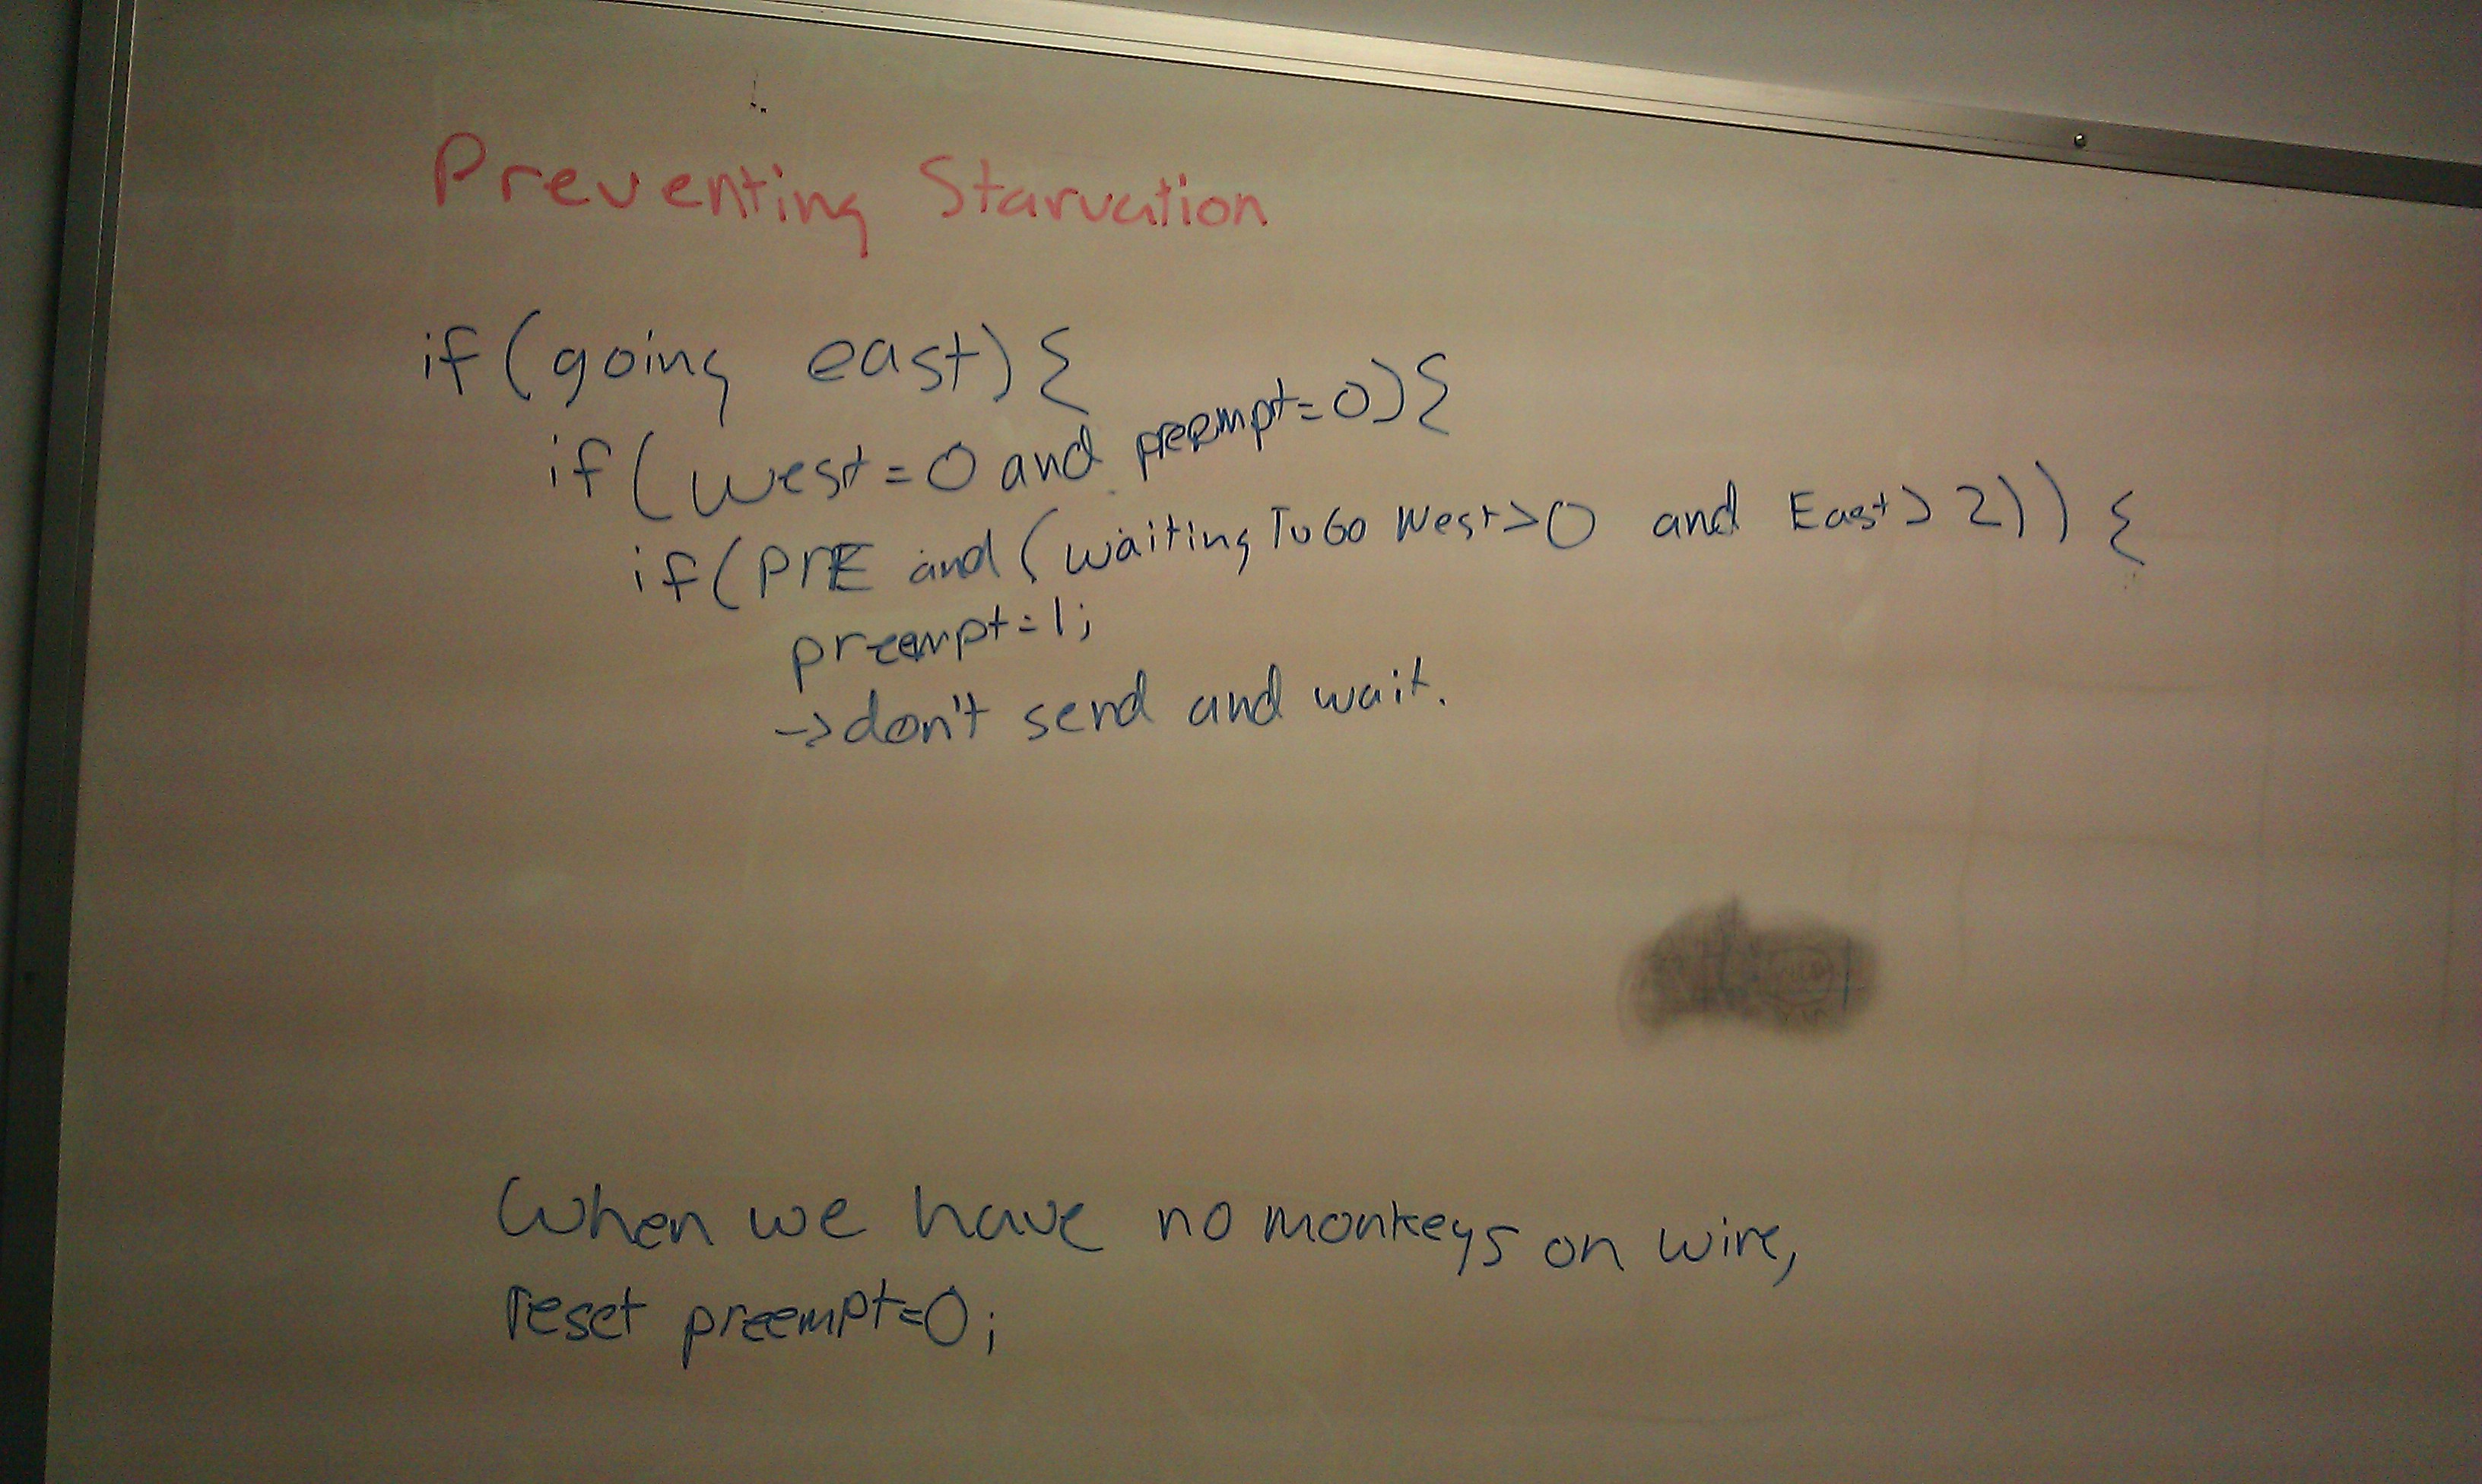 Preventing Starvation
if (going east) {
if (west = 0 and preempt = 0) {
if (PrE and (waiting To Go West > 0 and East > 2)) {
preempt = 1;
-> don't send and wait.
When we have no monkeys on wire,
reset preempt=0;